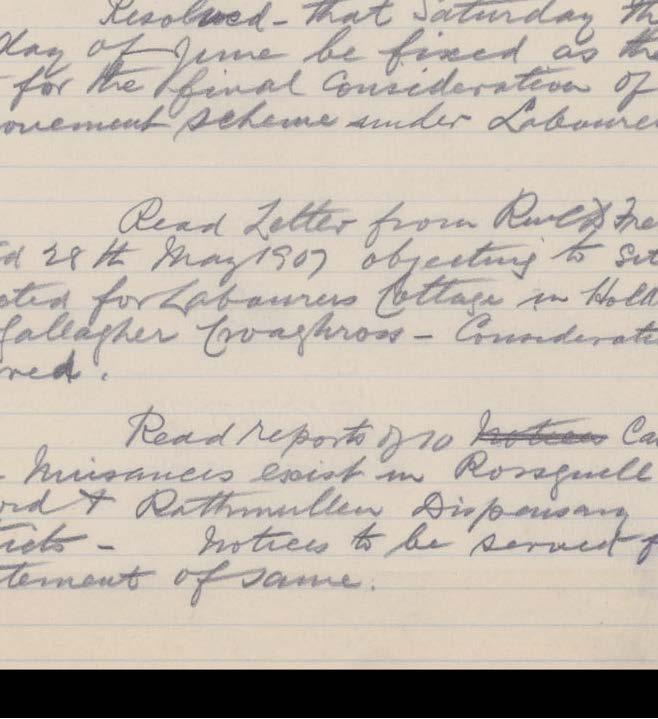 Resolved - that Saturday th
day of June be fixed as the
for the final Consideration of
ovement Scheme under Labourer
Read Letter from Revd D Fre
ed 28th May 1907 objecting to Sit
cted for Labourers Cottage in Hold
Gallagher Croaghross - Considerati
red.
Read reports of 10 Notices Ca
Nuisances exist in Rossguill
ord & Rathmullen Dispensary
ricts - Notices to be served f
tement of same.